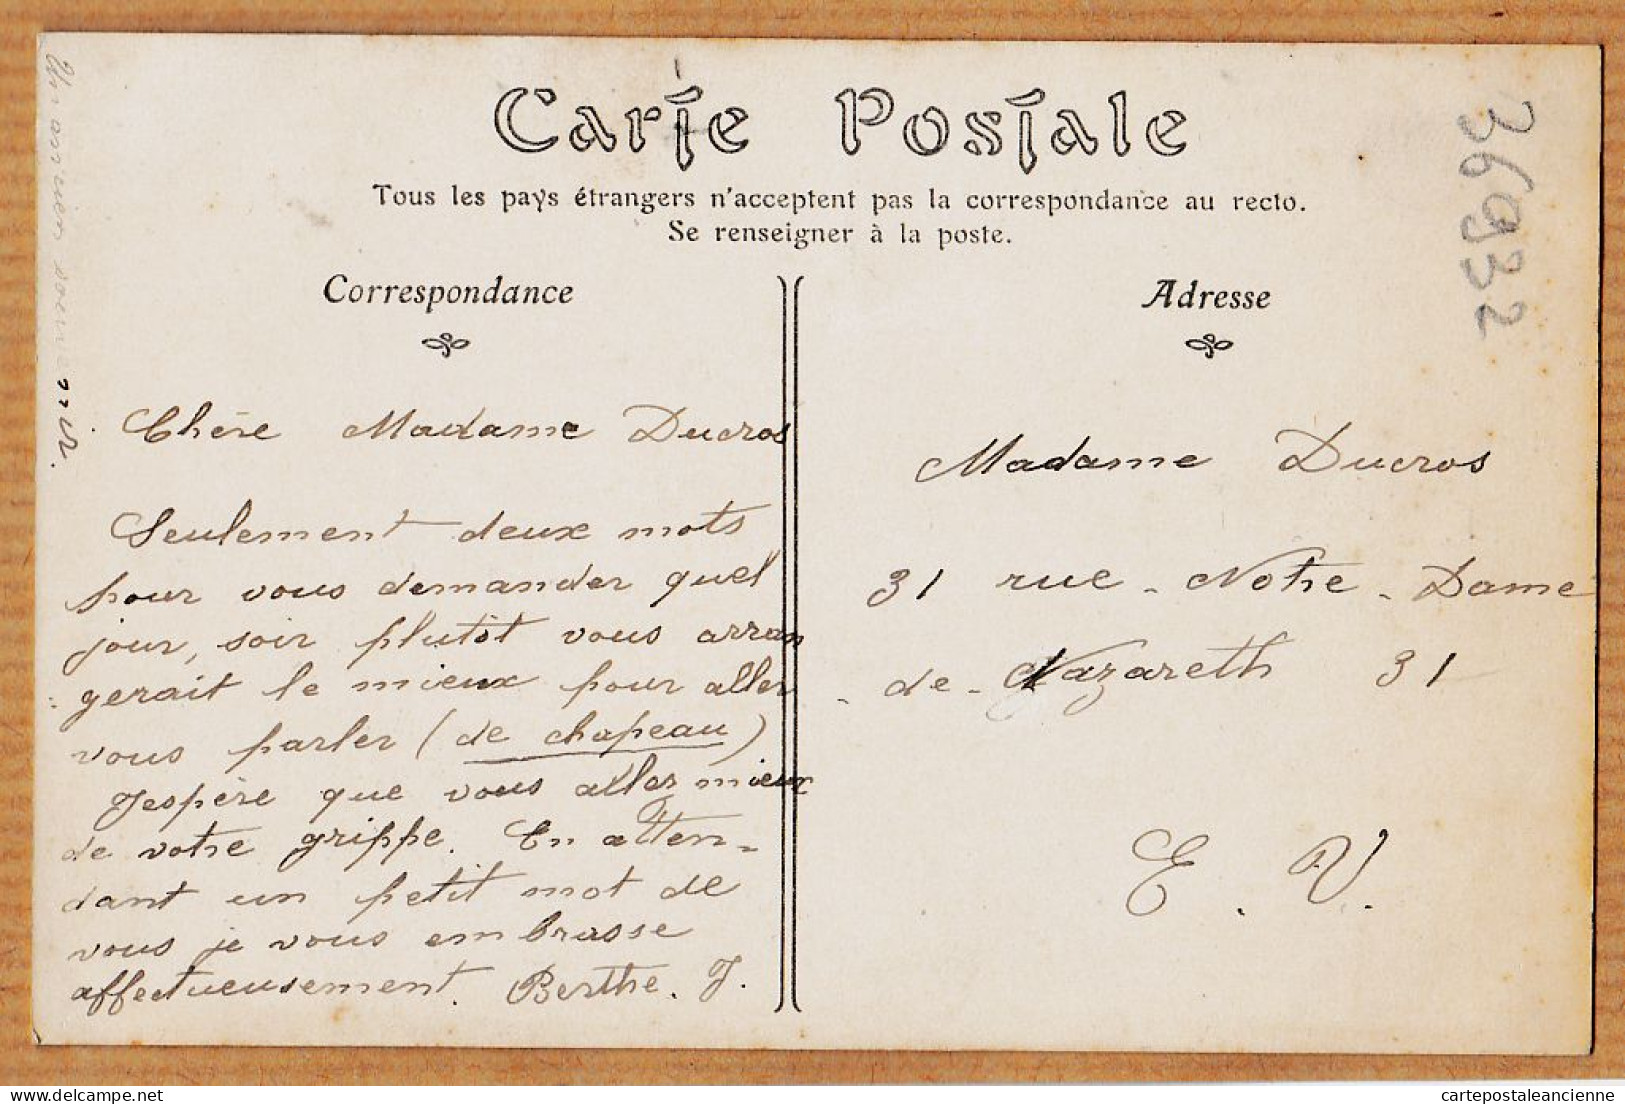 Carte Postale
Tous les pays étrangers n'acceptent pas la correspondance au recto.
Se renseigner à la poste.
Correspondance
Chère Madame Ducros
Seulement deux mots
pour vous demander quel
jour, soir plutôt vous arran
gerait le mieux pour aller
vous parler (de chapeau)
J'espère que vous allez mieux
de votre grippe. En atten-
dant un petit mot de
vous je vous embrasse
affectueusement. Berthe. J.
Adresse
Madame Ducros
31 rue - Notre - Dame
- de - Nazareth 31
E. V.
36932
delcampe.net
cartepostaleancienne